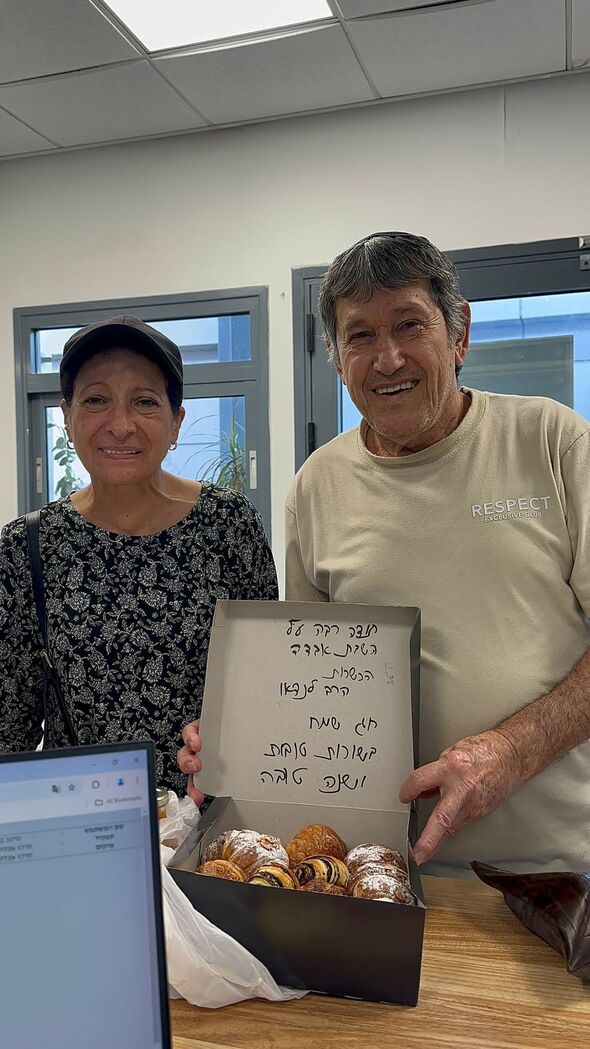 RESPECT
EXCLUSIVE CLUB
תודה רבה על
השבת אבדה
הכשרות
הרב לנדאו
חג שמח
בשורות טובות
ושנה טובה
All Bookmarks
שם המשתמש:
תפקיד:
מיקום: